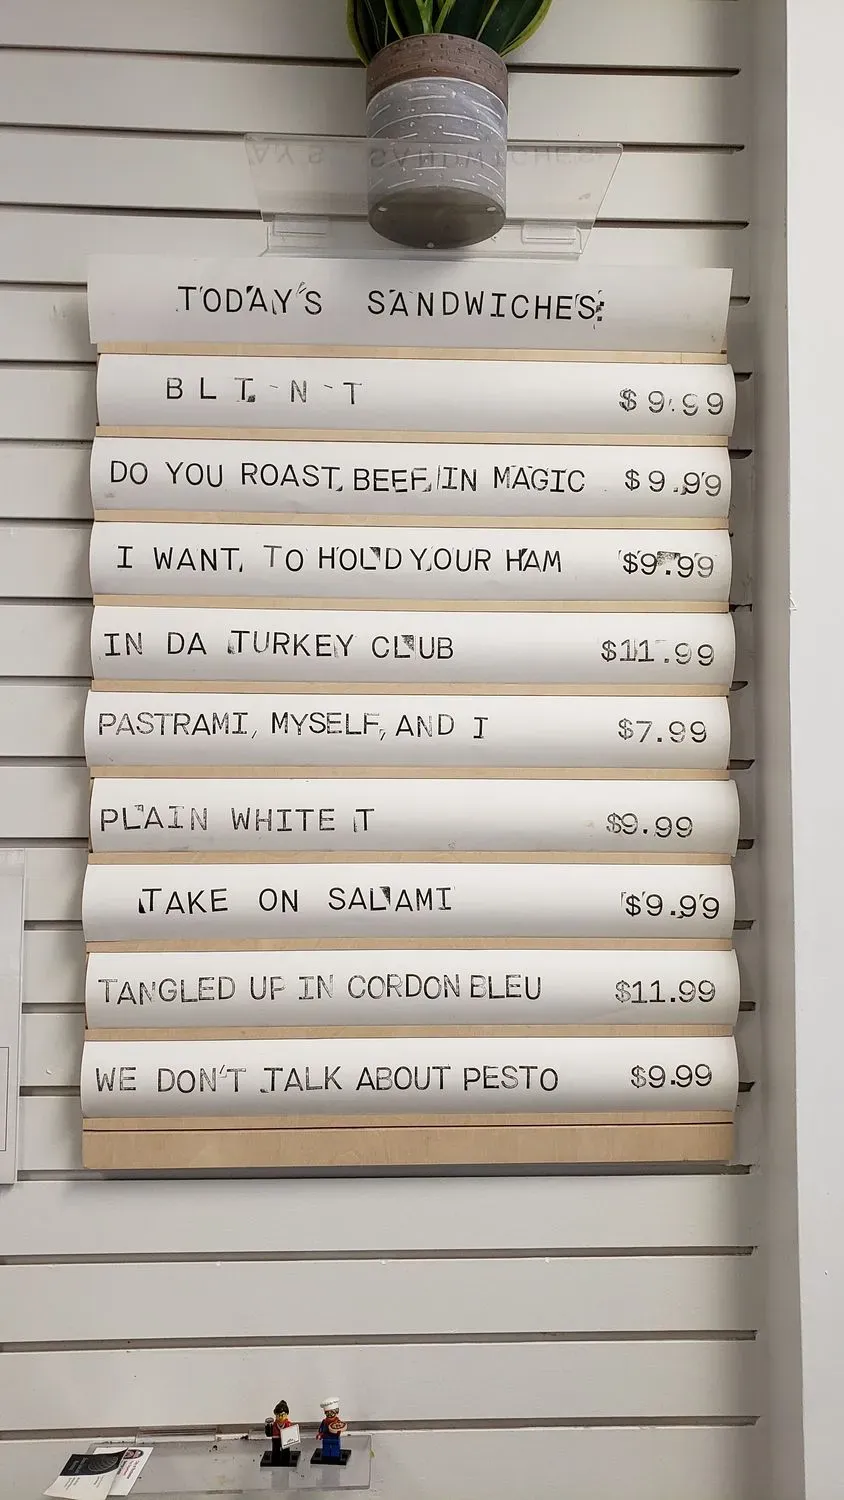 TODAY'S SANDWICHES:
BLT-N-T $9.99
DO YOU ROAST BEEF IN MAGIC $9.99
I WANT TO HOLD YOUR HAM $9.99
IN DA TURKEY CLUB $11.99
PASTRAMI, MYSELF, AND I $7.99
PLAIN WHITE T $9.99
TAKE ON SALAMI $9.99
TANGLED UP IN CORDON BLEU $11.99
WE DON'T TALK ABOUT PESTO $9.99